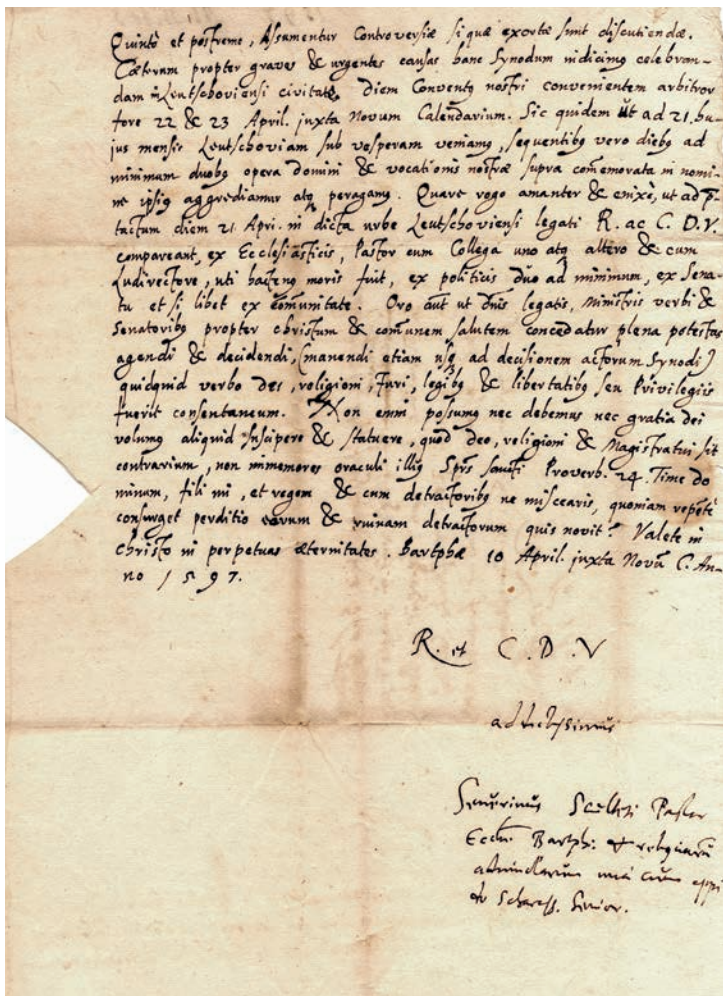 Quintò et postremo, Assumentur Controversiæ si quæ exortæ sunt discutiendæ.
Cæterum propter graves & urgentes causas hanc Synodum indicimus celebran-
dam in Leutschoviensi civitate, diem Conventus nostri convenientem arbitror
fore 22 & 23 April. juxta Novum Calendarium. Sic quidem ut ad 21. hu-
jus mensis Leutschoviam sub vesperam veniamus, sequentibus vero diebus ad
minimum duobus opera domini & vocationis nostræ supra comemorata in nomi-
ne ipsius aggrediamur atq peragamus. Quare rogo amanter & enixè, ut ad p-
tactum diem 21 Apri. in dicta urbe Leutschoviensi legati R. ac C. D. V.
compareant, ex Ecclesiasticis, Pastor cum Collega uno atq altero & cum
Ludirectore, uti hactenus moris fuit, ex politicis duo ad minimum, ex Sena-
tu et si libet ex comunitate. Oro aut ut dnis legatis, ministris verbi &
Senatoribus propter christum & comunem salutem concedatur plena potestas
agendi & decidendi, (manendi etiam usq ad decisionem actorum Synodi)
quidquid verbo dei, religioni, Juri, legibus & libertatibus seu Privilegiis
fuerit consentaneum. Non enim possumus nec debemus nec gratia dei
volumus aliquid suscipere & statuere, quod deo, religioni & Magistratui sit
contrarium, non immemores oraculi illius Sprs sancti Proverb. 24. Time do
minum, fili mi, et regem & cum detractoribus ne miscearis, quoniam repente
consurget perditio eorum & ruinam detractorum quis novit? Valete in
christo in perpetuas æternitates. Bartphæ 10 April. juxta Novum C. An-
no 1597.
R. et C. D. V
addictissimus
Severinus Sculteti Pastor
Eccliæ Barthp: & reliquarum
una cum oppi
Schaross. Senior.